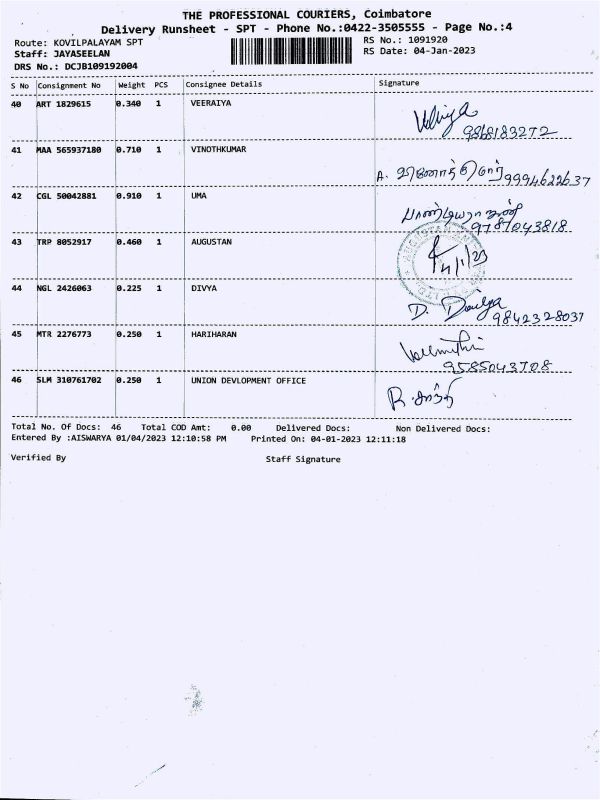 THE PROFESSIONAL COURIERS, Coimbatore
Delivery Runsheet - SPT - Phone No.:0422-3505555 - Page No.:4
Route: KOVILPALAYAM SPT
Staff: JAYASEELAN
DRS No.: DCJB109192004
RS No.: 1091920
RS Date: 04-Jan-2023
S No Consignment No Weight PCS Consignee Details Signature
40 ART 1829615 0.340 1 VEERAIYA
9868183272
41 MAA 565937180 0.710 1 VINOTHKUMAR
A. வினோத்குமார் 9994622637
42 CGL 50042881 0.910 1 UMA
9787043818
43 TRP 8052917 0.460 1 AUGUSTAN
4/1/23
44 NGL 2426063 0.225 1 DIVYA
D. Divya 9842328037
45 MTR 2276773 0.250 1 HARIHARAN
9585043708
46 SLM 310761702 0.250 1 UNION DEVLOPMENT OFFICE
Total No. Of Docs: 46 Total COD Amt: 0.00 Delivered Docs: Non Delivered Docs:
Entered By :AISWARYA 01/04/2023 12:10:58 PM Printed On: 04-01-2023 12:11:18
Verified By Staff Signature